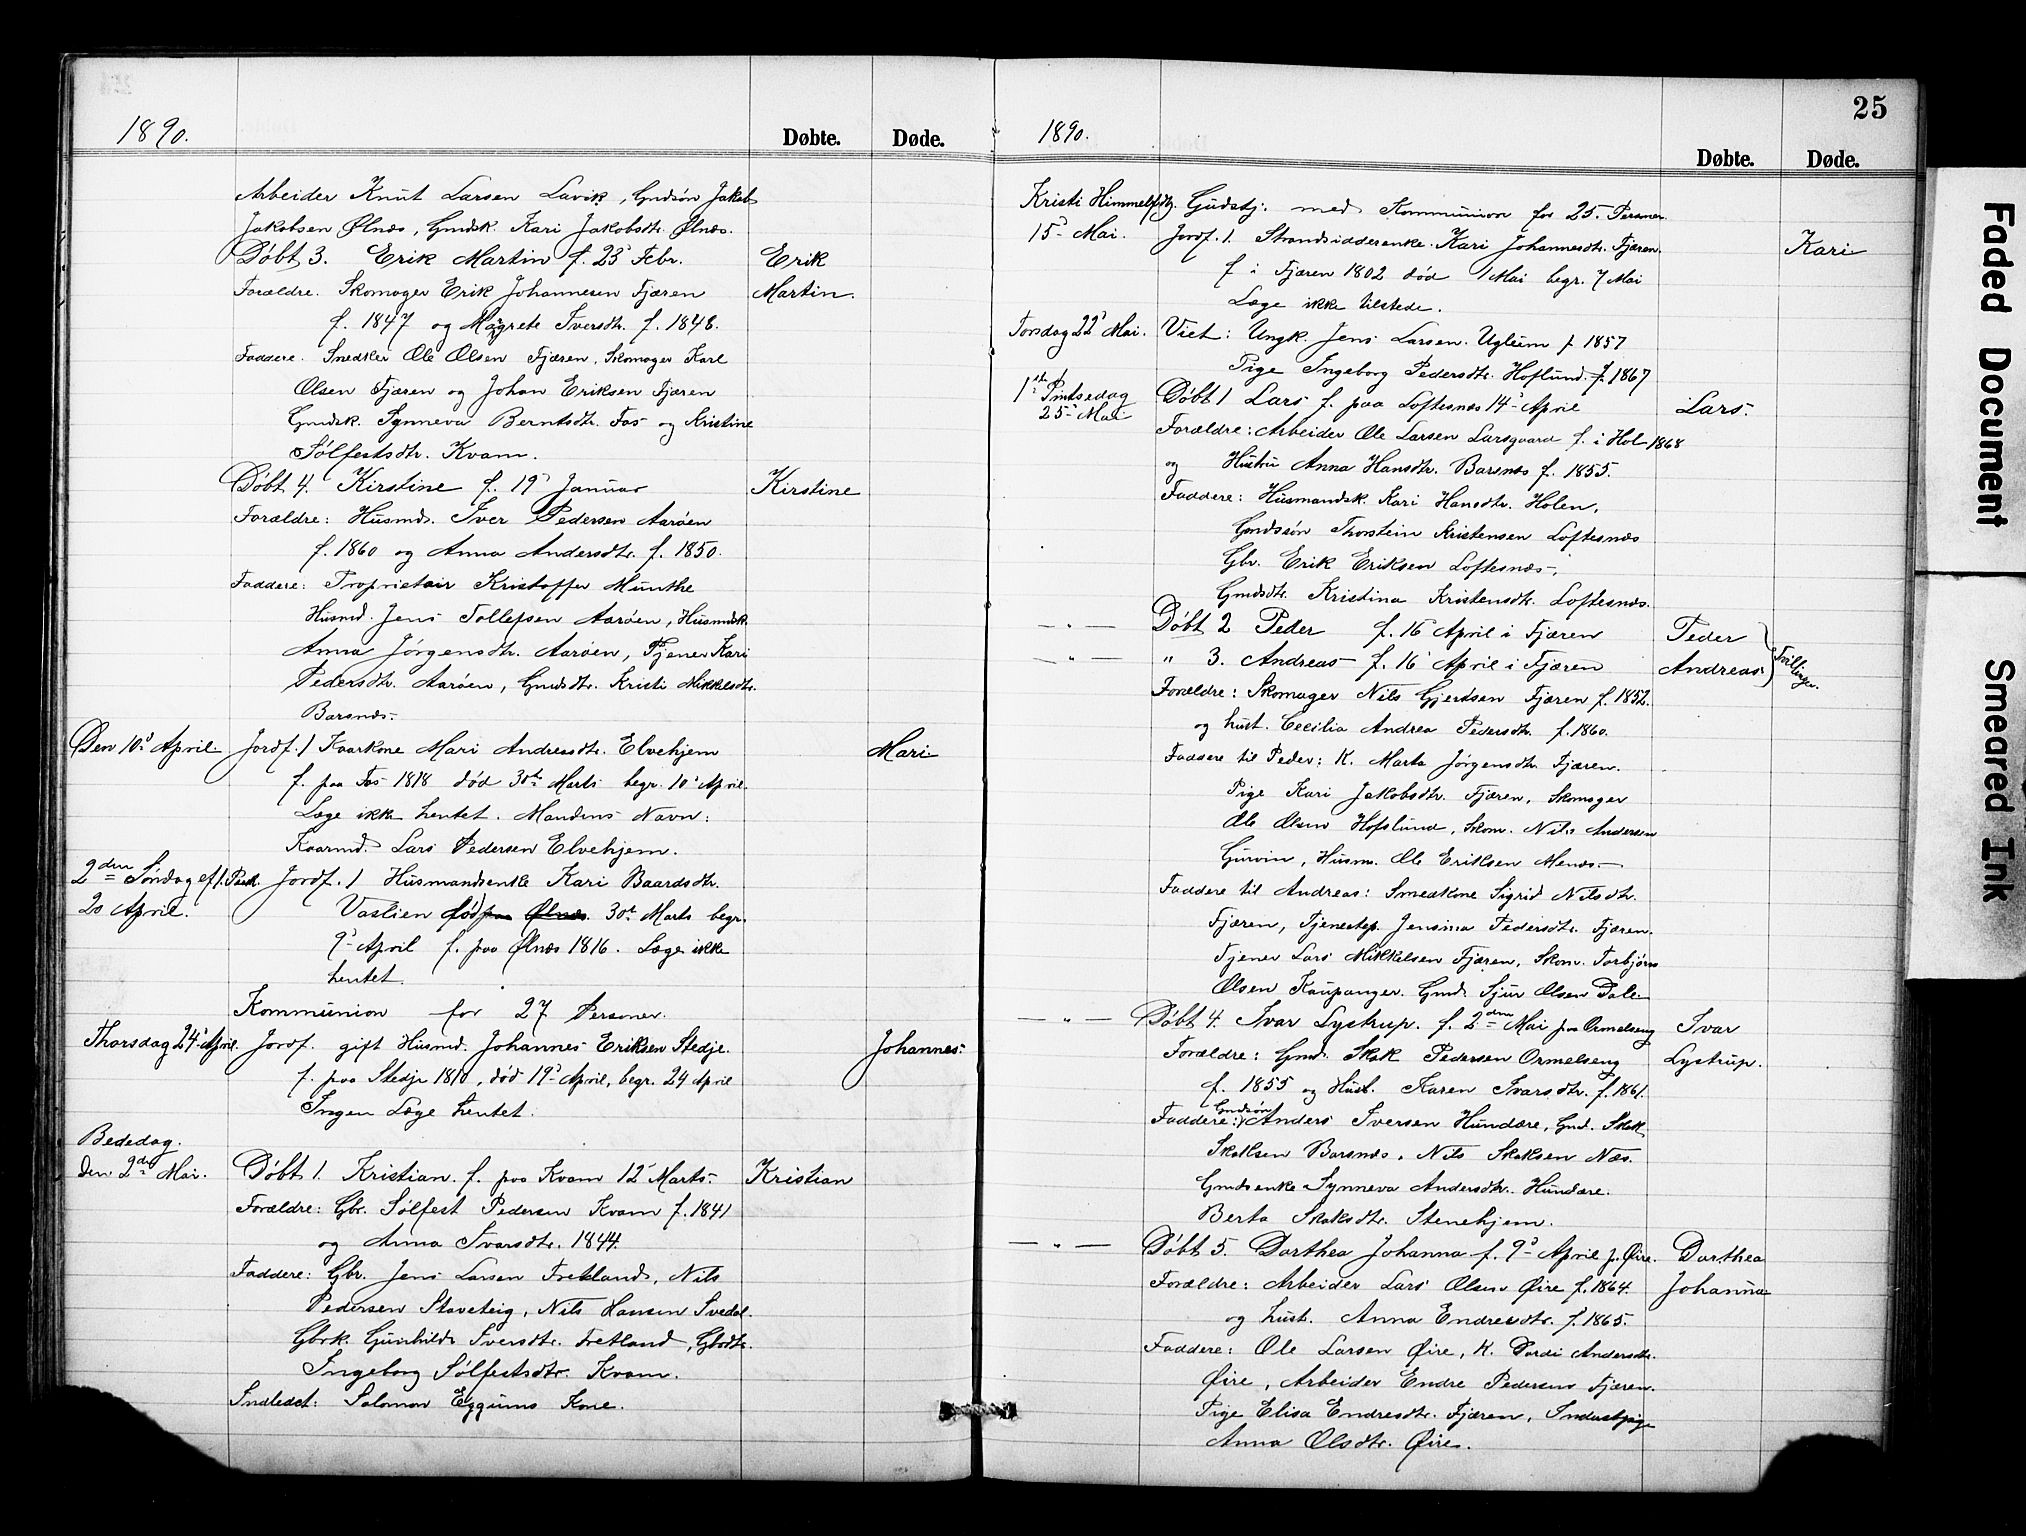 1890.
Døbte.
Døde.
Arbeider Knut Larsen Lavik, Gmdsøn Jakob
Jakobsen Ølnæs, Gmdsk. Kari Jakobsdtr. Ølnæs.
Døbt 3. Erik Martin f. 23 Febr.
Erik
Forældre. Skomager Erik Johannesen Fjæren
Martin.
f. 1847 og Margrete Iversdtr. f. 1848.
Faddere. Snedker Ole Olsen Fjæren, Skomager Karl
Olsen Fjæren og Johan Eriksen Fjæren
Gmdsk. Synneva Berntsdtr. Fos og Kristine
Sølfestsdtr. Kvam.
Døbt 4. Kirstine f. 19 Januar
Kirstine
Forældre: Husmd. Iver Pedersen Aarøen
f. 1860 og Anna Andersdtr. f. 1850.
Faddere: Proprietair Kristoffer Munthe
Husmd. Jens Tollefsen Aarøen, Husmdsk.
Anna Jørgensdtr. Aarøen, Tjener Kari
Pedersdtr. Aarøen, Gmdsdtr. Kristi Mikkelsdtr.
Barsnæs.
Den 10d April Jordf. 1 Kaarkone Mari Andreasdtr. Elvehjem
Mari
f. paa Fos 1818 død 30te Marts begr. 10 April.
Læge ikke hentet. Mandens Navn:
Kaarmd. Lars Pedersen Elvehjem.
2den Søndag ef. Paask. Jordf. 1 Husmandsenke Kari Baardsdtr.
20 April. Vaslien død paa Ølnæs. 30te Marts begr.
9 April f. paa Ølnæs 1816. Læge ikke
hentet.
Kommunion for 27 Personer.
Thorsdag 24 April. Jordf. gift Husmd. Johannes Eriksen Stedje.
Johannes.
f. paa Stedje 1810, død 19 April, begr. 24 April
Ingen Læge hentet.
Bededag.
den 2den Mai. Døbt 1. Kristian. f. paa Kvam 12 Marts.
Kristian
Forældre: Gbr. Sølfest Pedersen Kvam f. 1841
og Anna Ivarsdtr. 1844.
Faddere: Gbr. Jens Larsen Fretland, Nils
Pedersen Staveteig, Nils Hansen Svedal.
Gbrk. Gunhild Iversdtr. Fretland, Gbrdtr.
Ingeborg Sølfestsdtr. Kvam.
Indledet: Salomon Eggums Kone.
25
1890.
Døbte.
Døde.
Kristi Himmelfdtg. Gudstj. med Kommunion for 25. Personer.
15 Mai. Jordf. 1. Strandsidderenke. Kari Johannesdtr. Fjæren.
Kari
f i Fjæren 1802 død 1 Mai begr. 7 Mai
Læge ikke tilstede.
Torsdag 22 Mai. Viet: Ungk. Jens Larsen. Uglum f 1857
Pige Ingeborg Pedersdtr. Hoflund. f. 1867
1ste Pintsedag Døbt 1 Lars f. paa Loftesnæs 14 April
Lars.
25 Mai
Forældre: Arbeider Ole Larsen Larsgaard f. i Hol 1868
og Hustru Anna Hansdtr. Barsnæs f. 1855.
Faddere: Husmandsk. Kari Hansdtr. Holen,
Gmdssøn Thorstein Kristensen Loftesnæs
Gbr. Erik Eriksen Loftesnæs,
Gmdsdtr. Kristina Kristensdtr. Loftesnæs.
— " — Døbt 2 Peder f. 16 April i Fjæren
Peder
— " — " 3. Andreas f. 16 April i Fjæren
Andreas
Tvillinger.
Forældre: Skomager Nils Gjertsen Fjæren f. 1852.
og hust. Cecilia Andrea Pedersdtr. f. 1860.
Faddere til Peder: K. Marta Jørgensdtr. Fjæren.
Pige Kari Jakobsdtr. Fjæren, Skomager
Ole Olsen Hofslund, Skom. Nils Andersen
Gurvin, Husm. Ole Eriksen Menæs.
Faddere til Andreas: Smedkone Sigrid Nilsdtr.
Fjæren, Tjenestep. Jensina Pedersdtr. Fjæren.
Tjener Lars Mikkelsen Fjæren, Skom. Torbjørn
Olsen Kaupanger. Gmd. Sjur Olsen Dale.
— " — Døbt 4. Ivar Lystrup. f. 2den Mai paa Ormelseng
Ivar
Forældre: Gmd. Skak Pedersen Ormelseng
Lystrup.
f. 1855 og Hust. Karen Ivarsdtr. f. 1861.
Faddere: Gmdsøn Anders Iversen Hundere, Gmd. Skak
Skaksen Barsnæs, Nils Skaksen Næs.
Gmdsenke Synneva Andersdtr. Hundere.
Berta Skaksdtr. Stenehjem.
— " — Døbt 5. Dorthea Johanna f. 9 April p. Øire.
Dorthea
Forældre: Arbeider Lars Olsen Øire f. 1864.
Johanna
og hust. Anna Endresdtr. f. 1865.
Faddere: Ole Larsen Øire, K. Dordi Andersdtr.
Øire, Arbeider Endre Pedersen Fjæren.
Pige Elisa Endresdtr. Fjæren, Inderstpige
Anna Olsdtr. Øire.
Faded Document
Smeared Ink